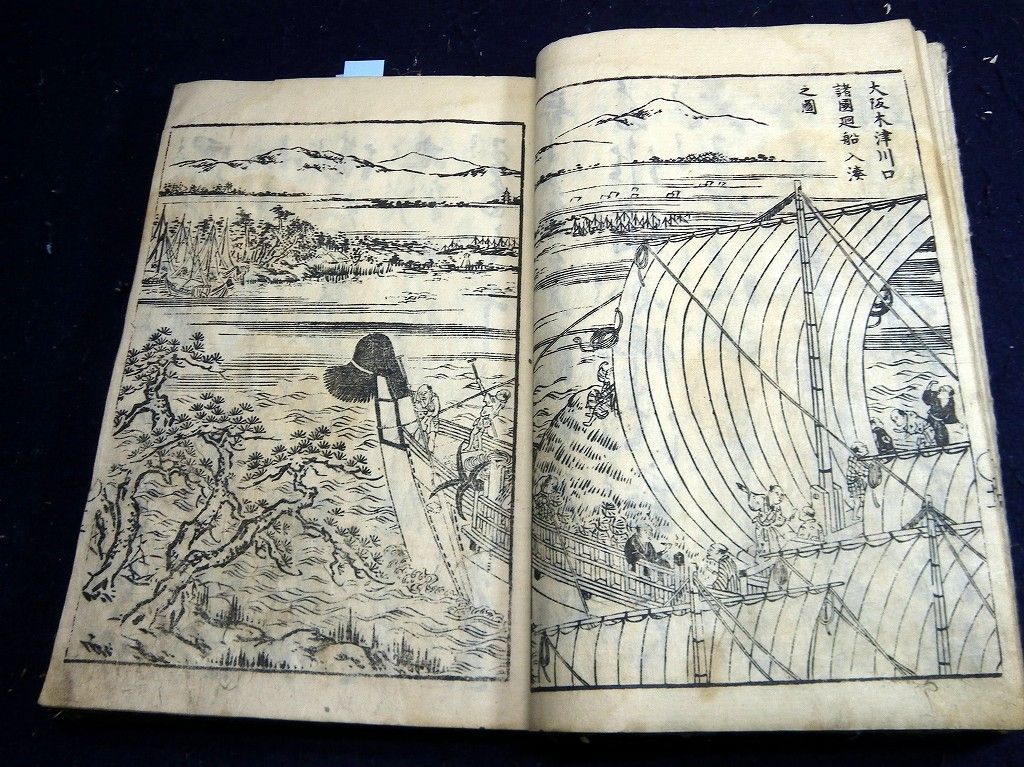 大阪木津川口
諸國廻船入湊
之圖